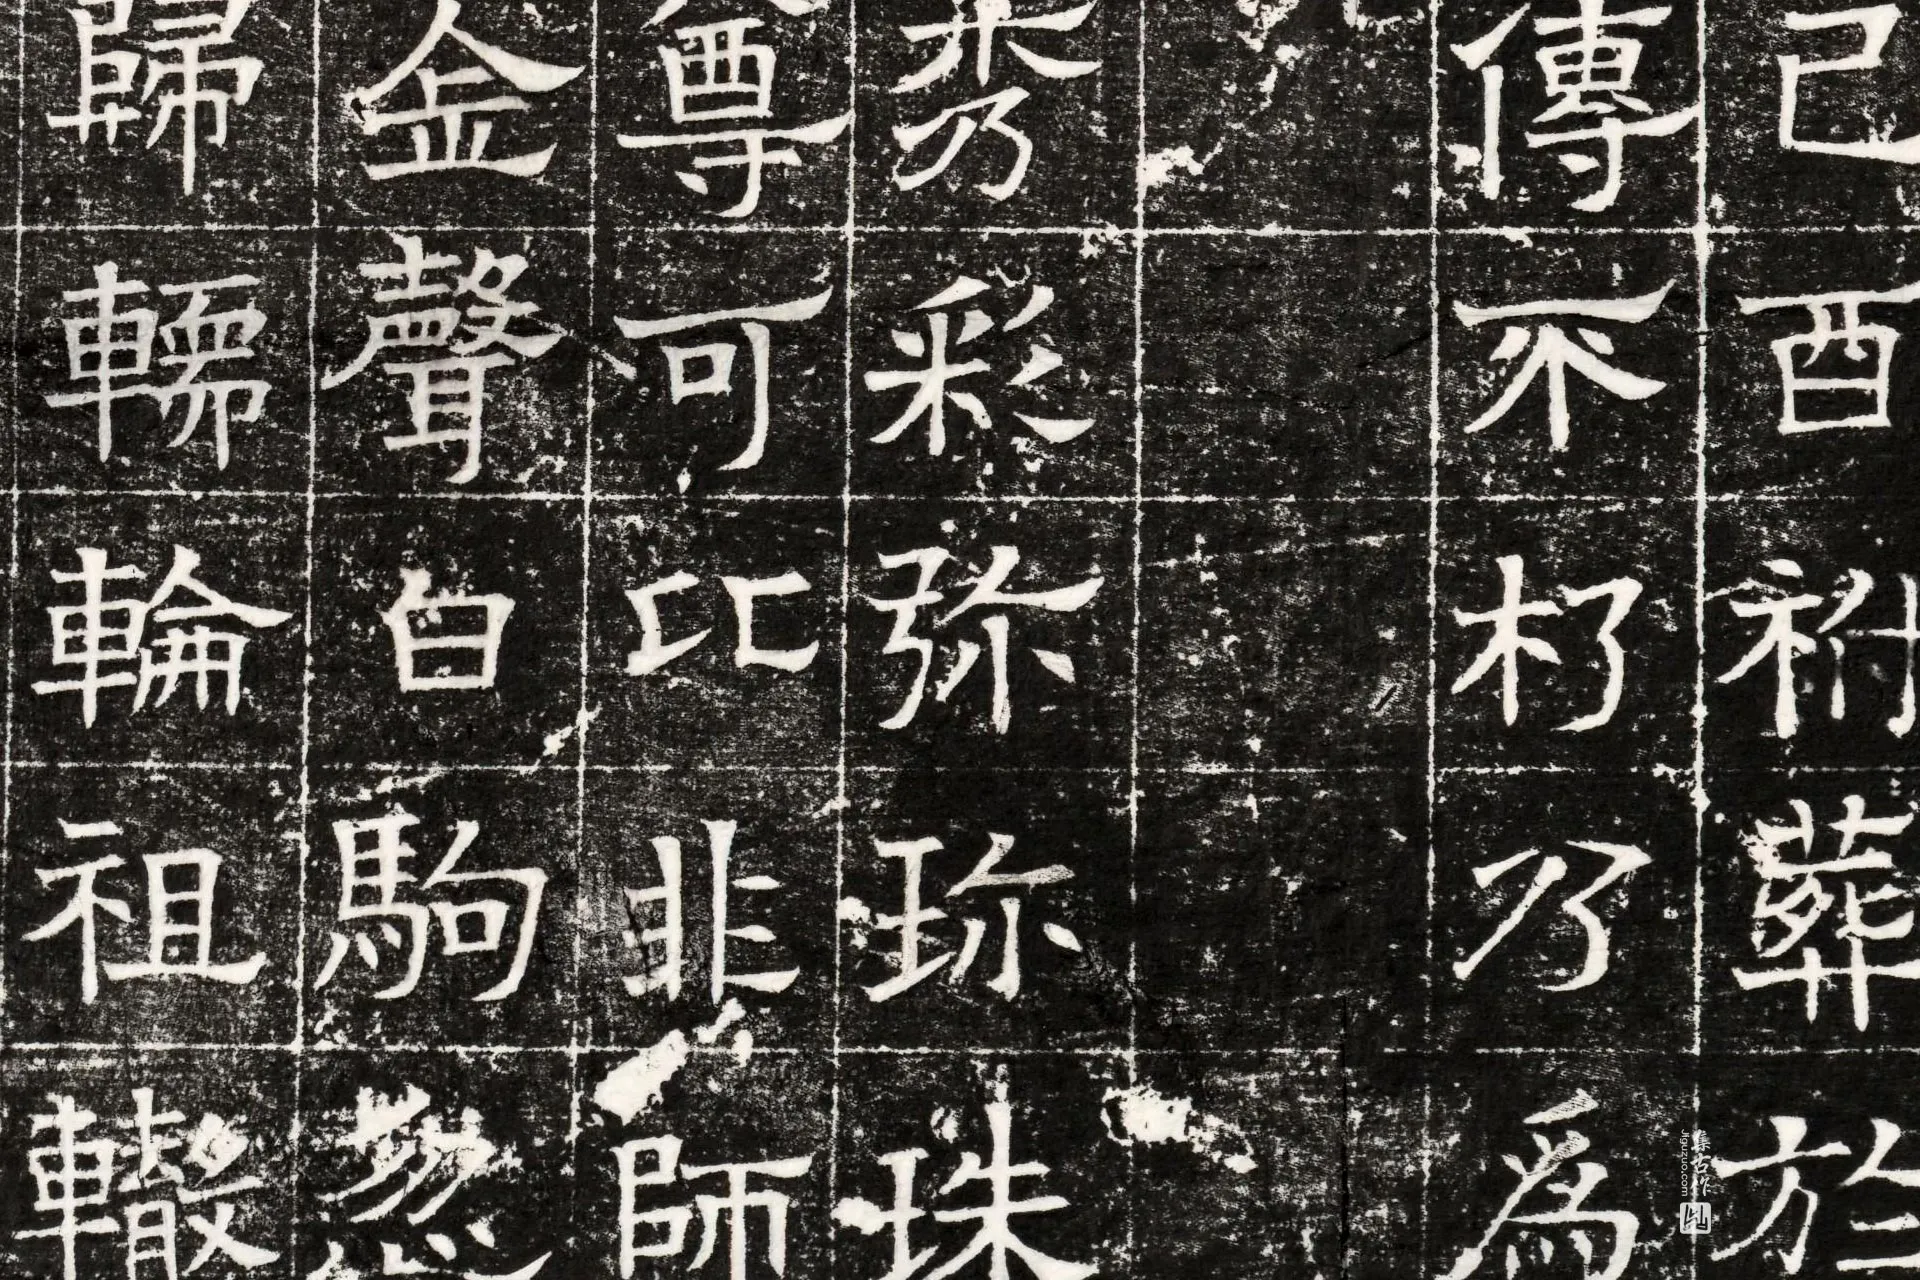 己酉祔葬於
傳不朽乃爲
秀彩弥珎珠
尊可比非師
金聲白駒忩
歸轜輪祖轍
集古作
Jiguzuo.com